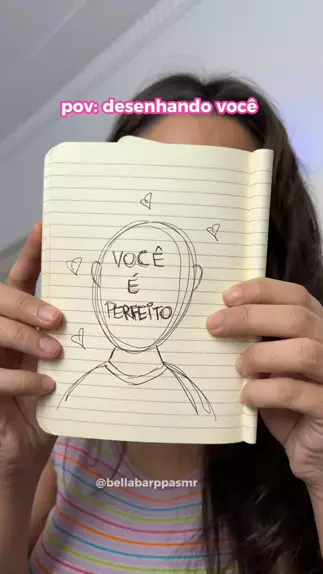 pov: desenhando você
VOCÊ
É
PERFEITO
@bellabarppasmr